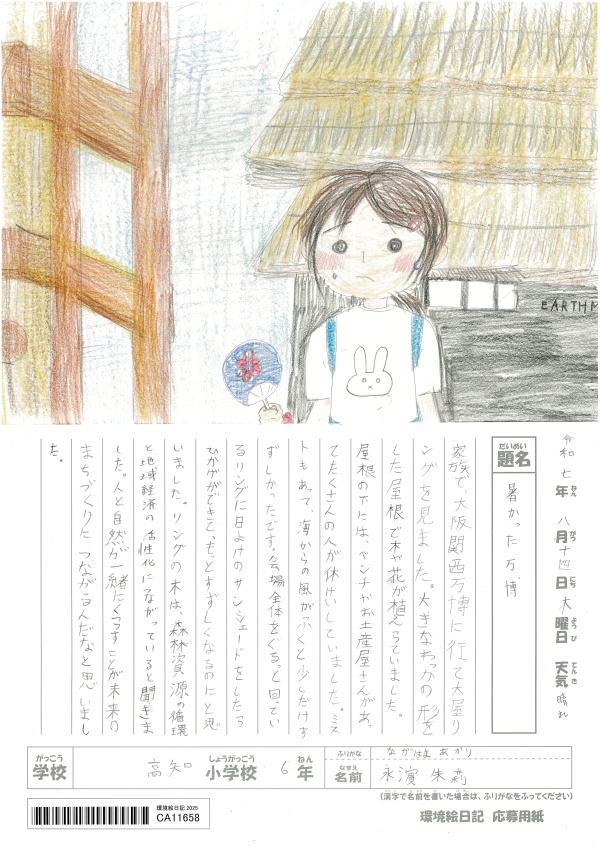 EARTHM
令和七年ねん八月がつ十四日にち木曜日ようび天気てんき晴れ
だいめい
題名
暑かった万博
家族で、大阪関西万博に行って大屋リ
ングを見ました。大きなわっかの形を
した屋根で木や花が植えられていました。
屋根の下には、ベンチやお土産屋さんがあっ
てたくさんの人が休けいしていました。ミス
トもあって、海からの風がふくと少しだけす
ずしかったです。会場全体をぐるっと回ってい
るリングに日よけのサンシェードをしたら
ひかげができて、もっとすずしくなるのにと思
いました。リングの木は、森林資源の循環
と地域経済の活性化につながっていると聞きま
した。人と自然が一緒にくらすことが未来の
まちづくりにつながるんだなと思いまし
た。
がっこう
学校
高知
しょうがっこう
小学校
6
ねん
年
ふりがな
ながはま あかり
なまえ
名前
永濱 朱莉
(漢字で名前を書いた場合は、ふりがなをふってください)
環境絵日記2025
CA11658
環境絵日記 応募用紙